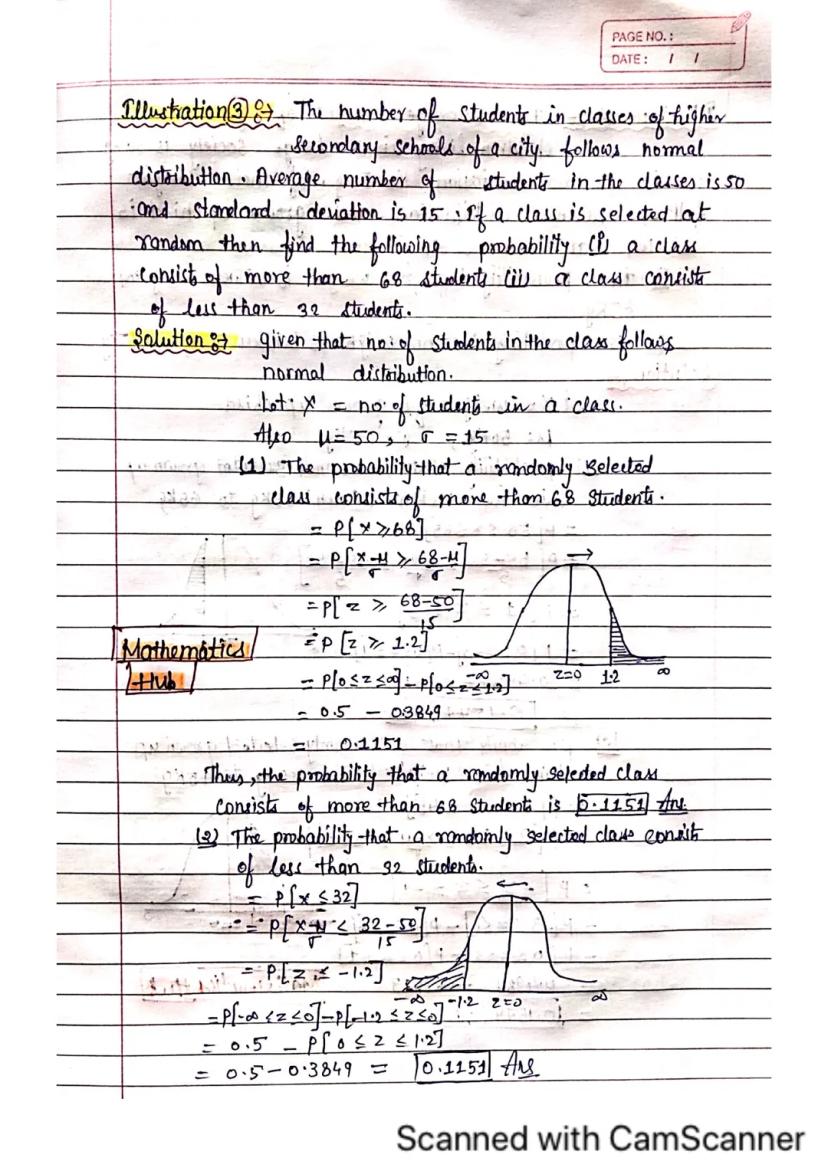 PAGE NO.:
DATE: / /
Illustration ③ :→ The number of students in classes of higher
secondary schools of a city follows normal
distribution. Average number of students in the classes is 50
and standard deviation is 15. If a class is selected at
random then find the following probability (i) a class
consists of more than 68 students (ii) a class consists
of less than 32 students.
Solution :→ given that no. of students in the class follows
normal distribution.
Let X = no. of students in a class.
Also μ = 50, σ = 15
(1) The probability that a randomly selected
class consists of more than 68 students.
= P[x ≥ 68]
= P[x-μ/σ ≥ 68-μ/σ]
= P[z ≥ 68-50/15]
Mathematics
Hub
= P[z ≥ 1.2]
-∞ z=0 1.2 ∞
= P[0≤z≤∞] - P[0≤z≤1.2]
= 0.5 - 0.3849
= 0.1151
Thus, the probability that a randomly seleded class
consists of more than 68 students is 0.1151 Ans.
(2) The probability that a randomly selected class consists
of less than 32 students.
= P[x ≤ 32]
= P[x-μ/σ < 32-50/15]
= P[z ≤ -1.2]
-∞ -1.2 z=0 ∞
= P[-∞ < z ≤ 0] - P[-1.2 ≤ z ≤ 0]
= 0.5 - P[0 ≤ z ≤ 1.2]
= 0.5 - 0.3849 = 0.1151 Ans
Scanned with CamScanner